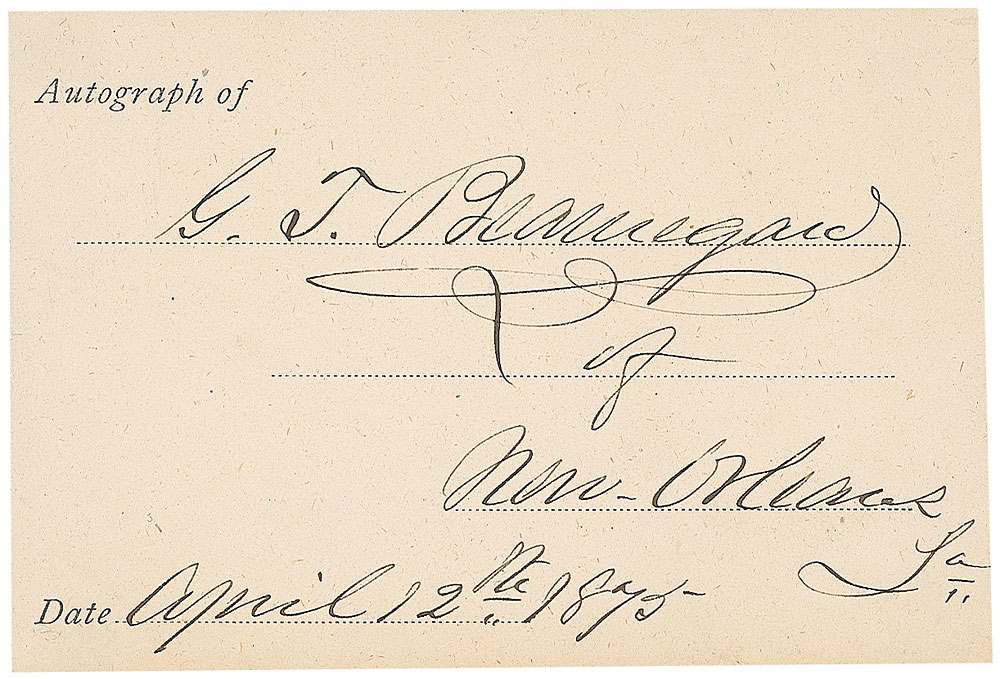 Autograph of
G. T. Beauregard
of
New-Orleans
La
Date April 12th 1875